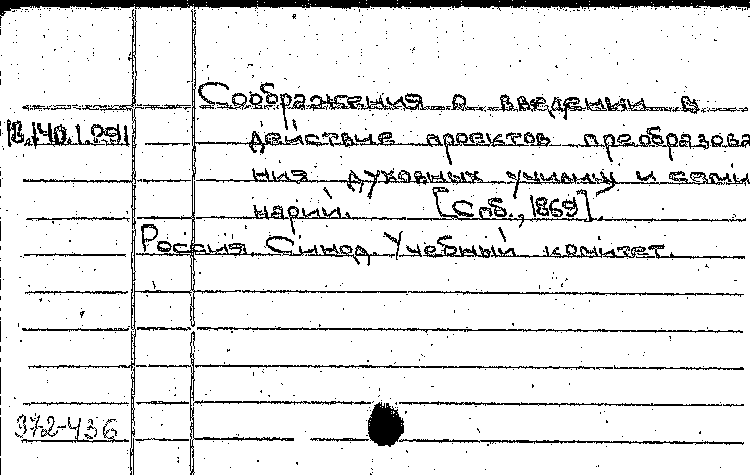 Соображения о введении в
18.140.1.091
действие проектов преобразова
ния духовных училищ и семи
нарий. [Спб., 1869].
Россия. Синод. Учебный комитет.
372-436